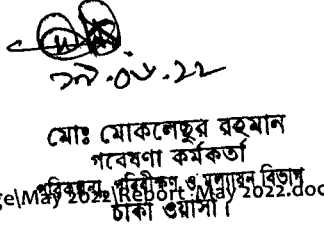 ১৯.০৬.২২
মোঃ মোকলেছুর রহমান
গবেষণা কর্মকর্তা
পরিকল্পনা, পরিবীক্ষণ ও মূল্যায়ন বিভাগ
ge\May 2022\Report :May 2022.doc
ঢাকা ওয়াসা।